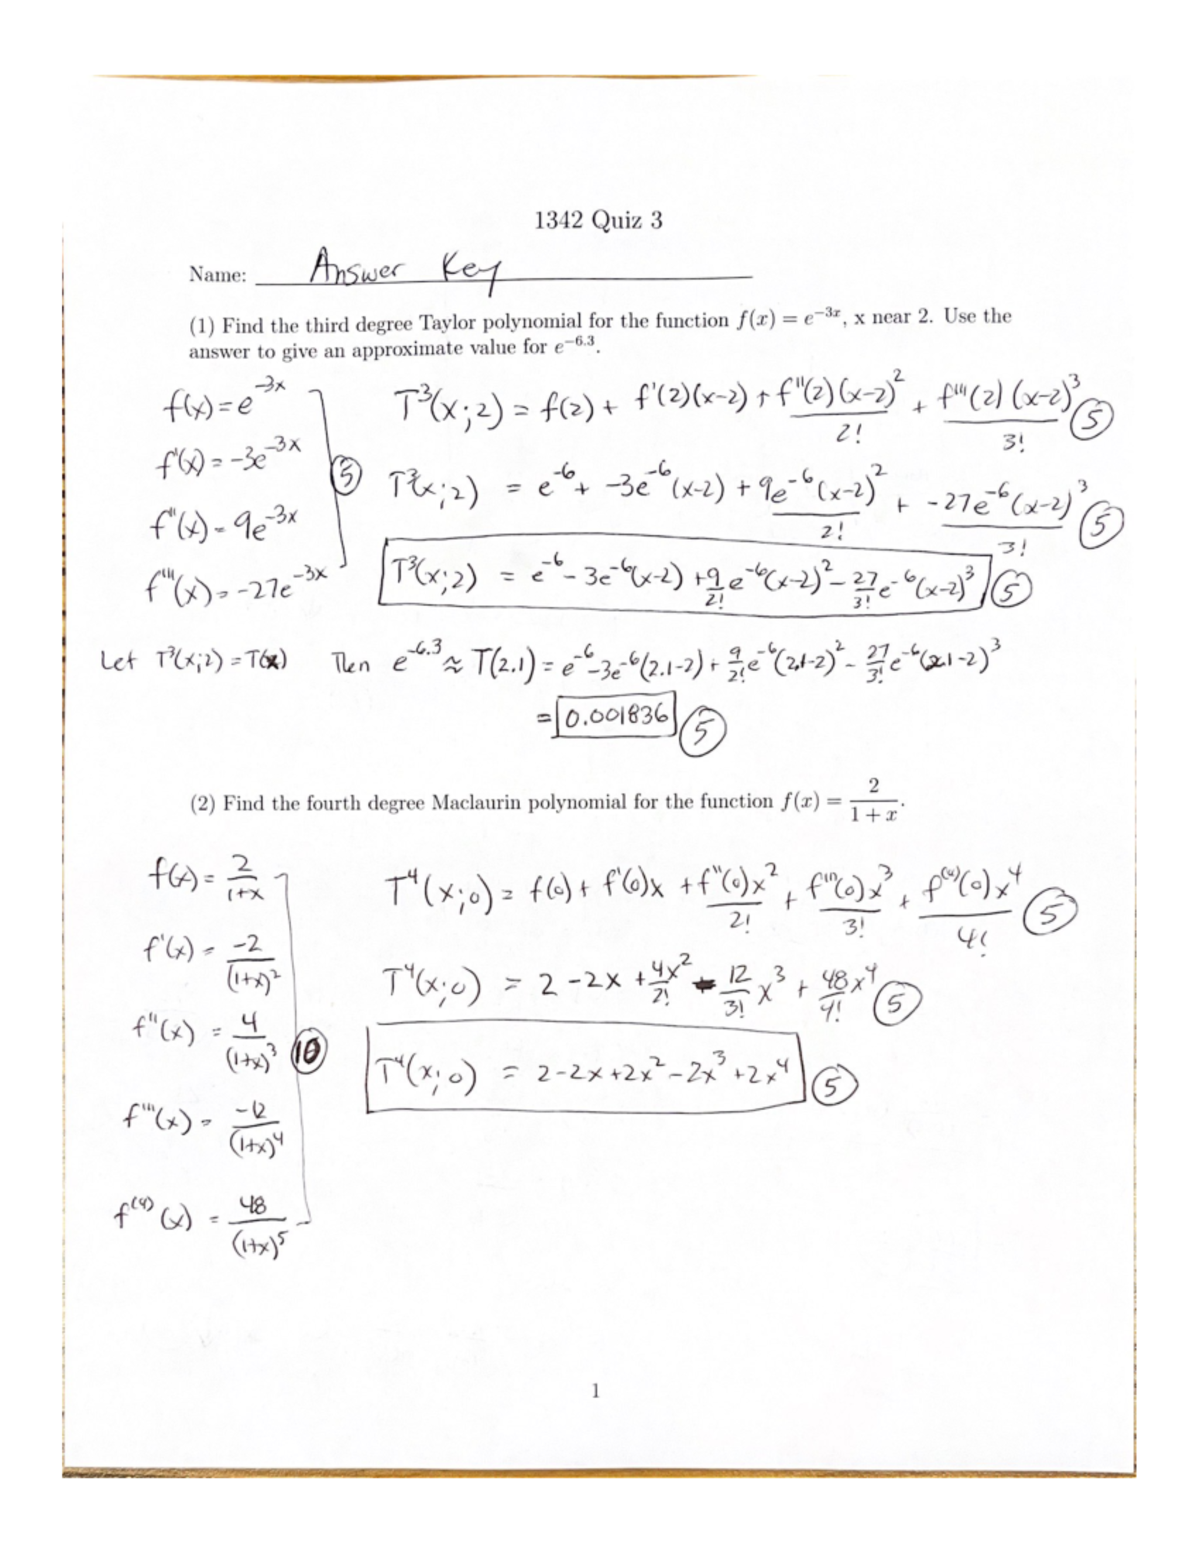 1342 Quiz 3
Name: Answer Key
(1) Find the third degree Taylor polynomial for the function f(x) = e^{-3x}, x near 2. Use the
answer to give an approximate value for e^{-6.3}.
f(x) = e^{-3x}
f'(x) = -3e^{-3x}
f''(x) = 9e^{-3x}
f'''(x) = -27e^{-3x}
(5)
T^3(x;2) = f(2) + f'(2)(x-2) + f''(2)(x-2)^2/2! + f'''(2)(x-2)^3/3! (5)
T^3(x;2) = e^{-6} + -3e^{-6}(x-2) + 9e^{-6}(x-2)^2/2! + -27e^{-6}(x-2)^3/3! (5)
T^3(x;2) = e^{-6} - 3e^{-6}(x-2) + 9/2! e^{-6}(x-2)^2 - 27/3! e^{-6}(x-2)^3 (5)
Let T^3(x;2) = T(x) Then e^{-6.3} ≈ T(2.1) = e^{-6} - 3e^{-6}(2.1-2) + 9/2! e^{-6}(2.1-2)^2 - 27/3! e^{-6}(2.1-2)^3
= 0.001836 (5)
(2) Find the fourth degree Maclaurin polynomial for the function f(x) = 2/(1+x).
f(x) = 2/(1+x)
f'(x) = -2/(1+x)^2
f''(x) = 4/(1+x)^3
f'''(x) = -12/(1+x)^4
f^{(4)}(x) = 48/(1+x)^5
(10)
T^4(x;0) = f(0) + f'(0)x + f''(0)x^2/2! + f'''(0)x^3/3! + f^{(4)}(0)x^4/4! (5)
T^4(x;0) = 2 - 2x + 4x^2/2! - 12/3! x^3 + 48x^4/4! (5)
T^4(x;0) = 2-2x+2x^2-2x^3+2x^4 (5)
1